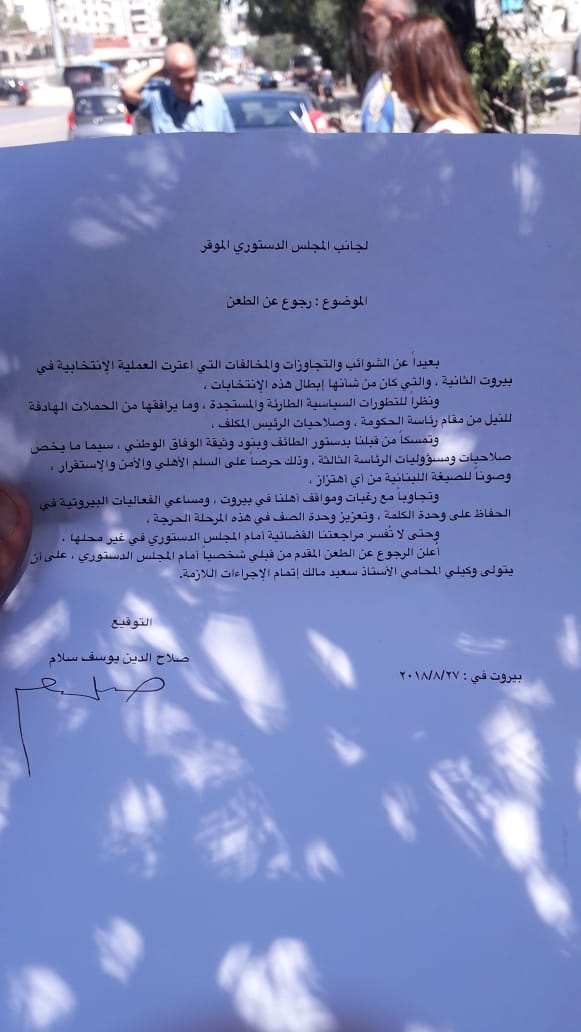 لجانب المجلس الدستوري الموقر
الموضوع : رجوع عن الطعن
بعيداً عن الشوائب والتجاوزات والمخالفات التي اعترت العملية الإنتخابية في
بيروت الثانية ، والتي كان من شانها إبطال هذه الإنتخابات ،
ونظراً للتطورات السياسية الطارئة والمستجدة ، وما يرافقها من الحملات الهادفة
للنيل من مقام رئاسة الحكومة ، وصلاحيات الرئيس المكلف ،
وتمسكاً من قبلنا بدستور الطائف وبنود وثيقة الوفاق الوطني ، سيما ما يخص
صلاحيات ومسؤوليات الرئاسة الثالثة ، وذلك حرصاً على السلم الأهلي والأمن والإستقرار ،
وصوناً للصيغة اللبنانية من أي اهتزاز ،
وتجاوباً مع رغبات ومواقف أهلنا في بيروت ، ومساعي الفعاليات البيروتية في
الحفاظ على وحدة الكلمة ، وتعزيز وحدة الصف في هذه المرحلة الحرجة ،
وحتى لا تُفسر مراجعتنا القضائية أمام المجلس الدستوري في غير محلها ،
أعلن الرجوع عن الطعن المقدم من قبلي شخصياً أمام المجلس الدستوري ، على أن
يتولى وكيلي المحامي الأستاذ سعيد مالك إتمام الإجراءات اللازمة.
التوقيع
صلاح الدين يوسف سلام
بيروت في : ٢٠١٨/٨/٢٧